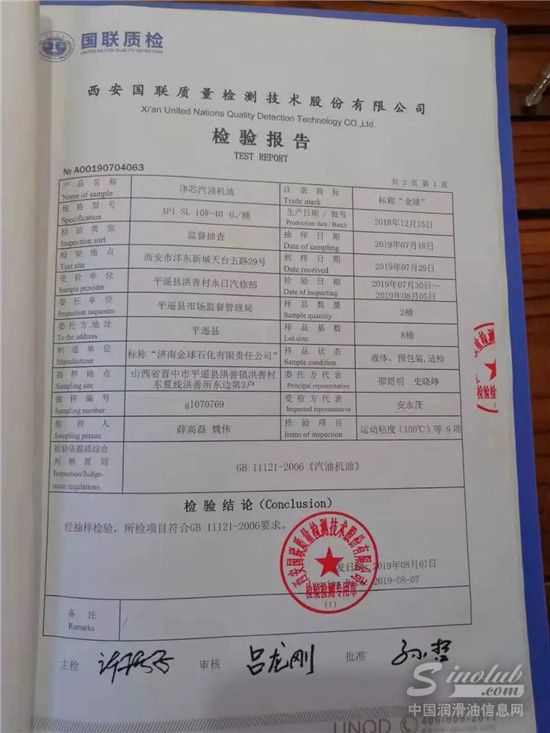 国联质检
UNITED NATION QUALITY DETECTION
西安国联质量检测技术股份有限公司
Xi'an United Nations Quality Detection Technology CO.,Ltd
检验报告
TEST REPORT
№ A00190704063
共 2 页 第 1 页
产品名称 Name of sample 净芯汽油机油 注册商标 Trade mark 标称“金球”
规格型号 Specification API SL 10W-40 4L/桶 生产日期/批号 Production date/Batch 2018年12月15日
检验类别 Inspection sort 监督抽查 抽样日期 Date of sampling 2019年07月18日
检验地点 Test site 西安市沣东新城天台五路29号 到样日期 Date received 2019年07月29日
受检单位 Sample provider 平遥县洪善村永日汽修部 检验日期 Date of inspecting 2019年07月30日~2019年08月05日
委托单位 Inspection requestor 平遥县市场监督管理局 样品数量 Sample quantity 2桶
委托方地址 To the address 平遥县 样品基数 Lot size 8桶
制造单位 Manufacturer 标称“济南金球石化有限责任公司” 样品状态 Sample condition 液体、预包装,适检
抽样地点 Sampling site 山西省晋中市平遥县洪善镇洪善村东夏线洪善所东边第3户 委托方代表 Principal representative 邵煜明 史晓峥
抽样编号 Sampling number gl070769 受检方代表 Inspected representative 安永茂
抽样人 Sampling person 薛高磊 魏伟 检验项目 Items of inspection 运动粘度(100℃)等.9 项
检验依据或综合判断原则 Inspection/Judgement regulations GB 11121-2006《汽油机油》
检验结论(Conclusion)
经抽样检验,所检项目符合GB 11121-2006要求。
西安国联质量检测技术股份有限公司
检验检测专用章
(1)
发日期 2019年08月07日
2019-08-07
备注 Remarks /
主检 审核 吕龙刚 批准
UNQD
Sinolub.com
中国润滑油信息网